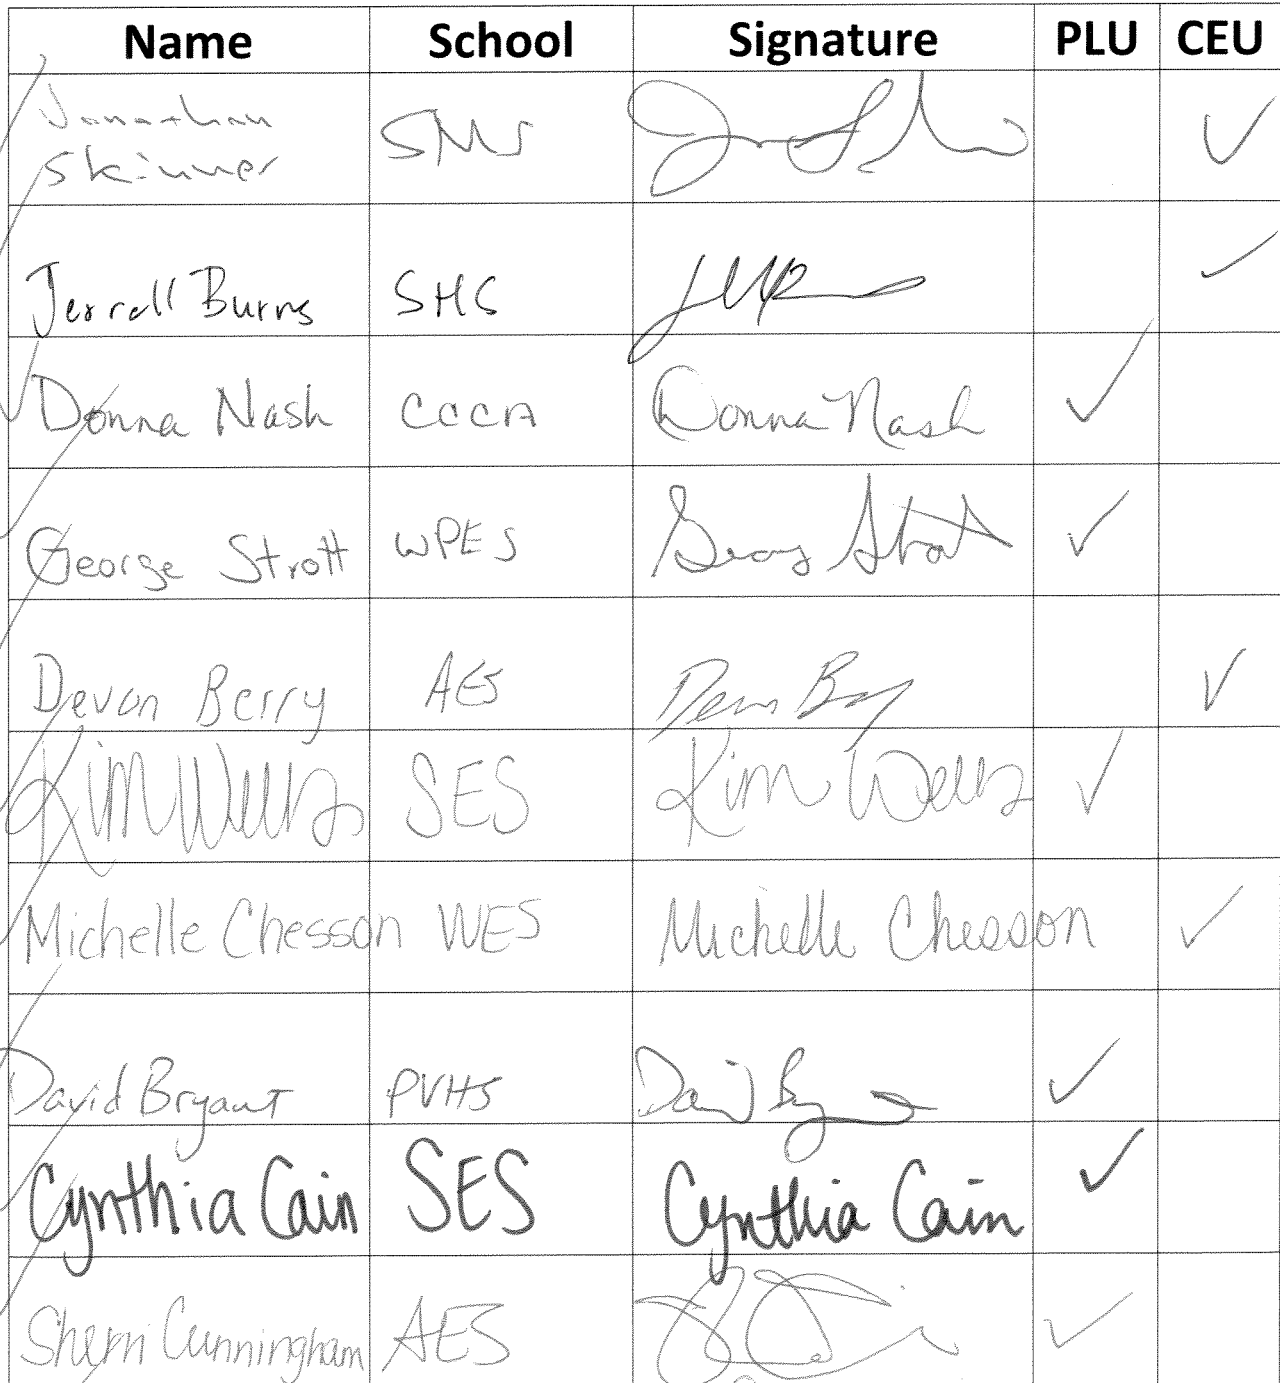 Name School Signature PLU CEU
Jonathan Skinner SMS ✓
Jerrell Burns SHS ✓
Donna Nash CCCA Donna Nash ✓
George Strott WPES George Strott ✓
Devon Berry AES Devon Berry ✓
Kim Wells SES Kim Wells ✓
Michelle Chesson WES Michelle Chesson ✓
David Bryant PVHS David Bryant ✓
Cynthia Cain SES Cynthia Cain ✓
Sherri Cunningham AES ✓